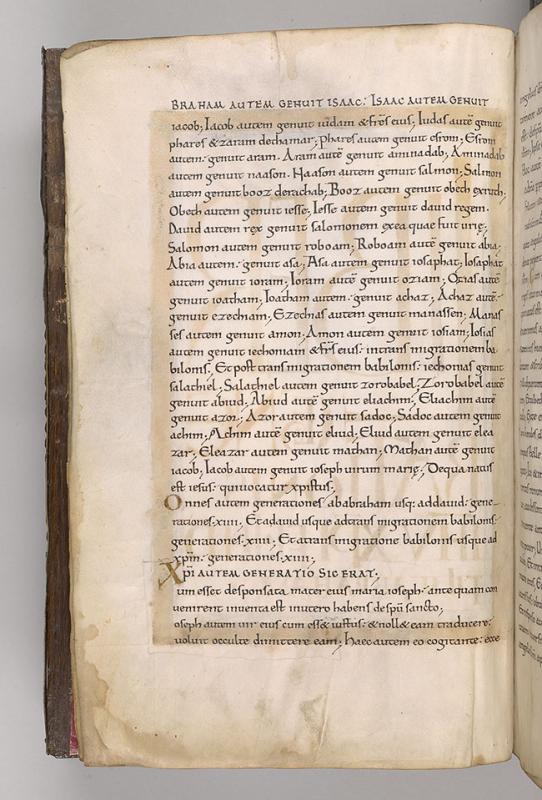 BRAHAM AUTEM GENUIT ISAAC; ISAAC AUTEM GENUIT
iacob; Iacob autem genuit iudam & frēs eius; Iudas autē genuit
phares & zaram dethamar; phares autem genuit esrom; Esrom
autem genuit aram. Aram autē genuit aminadab; Aminadab
autem genuit naason. Naason autem genuit salmon; Salmon
autem genuit booz derachab; Booz autem genuit obeth exruth;
Obeth autem genuit iesse; Iesse autem genuit david regem.
David autem rex genuit salomonem ex ea quae fuit urię;
Salomon autem genuit roboam; Roboam autē genuit abia;
Abia autem genuit asa; Asa autem genuit iosaphat; Iosaphat
autem genuit ioram; Ioram autē genuit oziam; Ozias autē
genuit ioatham; Ioatham autem genuit achaz; Achaz autē
genuit ezechiam; Ezechias autem genuit manassen; Manas
ses autem genuit amon; Amon autem genuit iosiam; Iosias
autem genuit iechoniam & frēs eius; intrans migrationem ba
bilonis, Et post trans migrationem babilonis; iechonias genuit
salathiel; Salathiel autem genuit zorobabel; Zorobabel autē
genuit abiud; Abiud autē genuit eliachim; Eliachim autē
genuit azor; Azor autem genuit sadoc; Sadoc autem genuit
achim; Achim autē genuit eliud; Eliud autem genuit elea
zar; Eleazar autem genuit mathan; Mathan autē genuit
iacob; Iacob autem genuit ioseph virum marię; De qua natus
est iesus; qui vocatur xpistus;
Omnes autem generationes ab abraham usq; ad david; gene
rationes xiiii; Et a david usque ad trans migrationem babilonis;
generationes xiiii; Et a trans migratione babilonis usque ad
xpm̄; generationes xiiii;
Xpi AUTEM GENERATIO SIC ERAT;
um esset desponsata mater eius maria ioseph; ante quam con
venirent inventa est in utero habens de spū sancto;
oseph autem vir eius cum ess& iustus; & noll& eam traducere;
voluit occulte dimittere eam; Haec autem eo cogitante; ecce